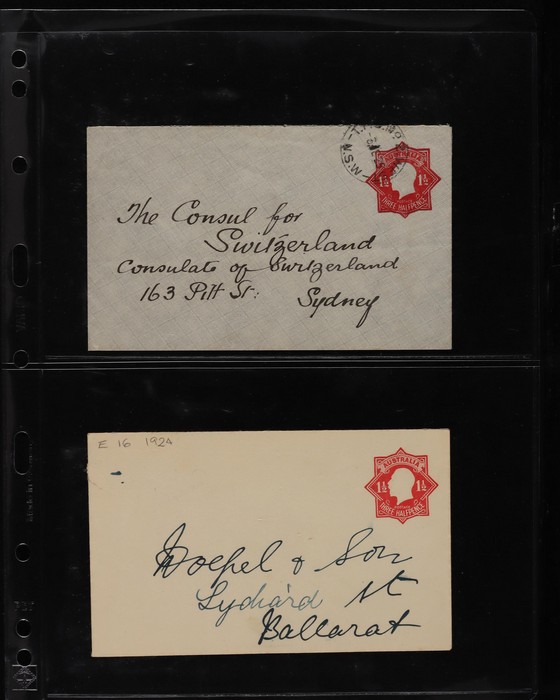 AUSTRALIA
1½ 1½
THREE HALFPENCE
The Consul for
Switzerland
Consulate of Switzerland
163 Pitt St:
Sydney
E 16 1924
AUSTRALIA
1½ 1½
THREE HALFPENCE
& Son
Lydiard St
Ballarat